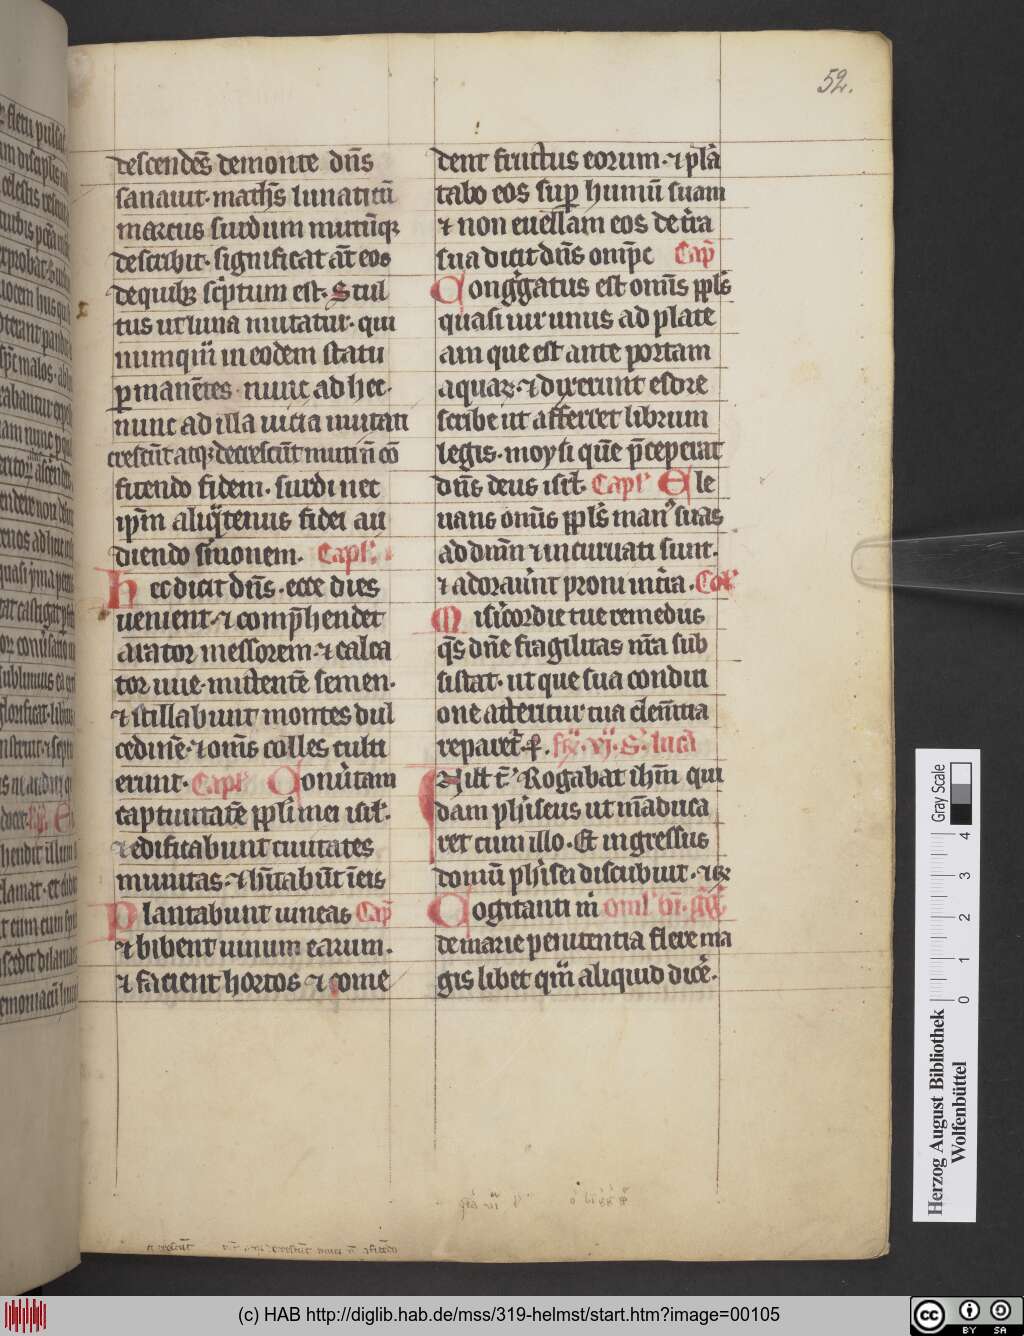 52.
descendēs demonte dn̄s
sanauit· math̄s lunaticū
marcus surdum mutūqꝫ
describit· significat aūt eos
de quibꝫ sc̄ptum est· Stul
tus ut luna mutatur· qui
numqͣm in eodem statu
ꝑmanētes nunc ad hec·
nunc ad illa uicia mutati
crescūt atqꝫ decrescūt muti n̄ cō
fitendo fidem· surdi nec
ip̄m aliqͣtenus fidei au
diendo s̓monem. Capl̓
Hec dicit dn̄s· ecce dies
uenient· ⁊ comp̄hendet
arator messorem· ⁊ calca
tor uue· mittentē semen·
⁊ stillabunt montes dul
cedinē· ⁊ om̄s colles culti
erunt· Capl̓ Conu̓tam
captiuitatē ppl̓i mei isrl̓·
⁊ edificabunt ciuitates
munitas· ⁊ hītabūt ī eis
Plantabunt uineas Cap̄
⁊ bibent uinum earum·
⁊ facient hortos ⁊ come
dent fructus eorum· ⁊ pl̄a
tabo eos suꝑ humū suam
⁊ non euellam eos de t̓ra
sua dicit dn̄s omp̄c Cap̄
Congͤgatus est om̄is ppl̓s
quasi uir unus ad plate
am que est ante portam
aquaꝝ· ⁊ dixerunt esdre
scribe ut afferret librum
legis· moysi quē p̄ceperat
dn̄s deus isrl̓· Capl̓ Ele
uans om̄is ppl̓s man̓ suas
ad dn̄m ⁊ incuruati sunt·
⁊ adorau̓nt proni in t̓ra· Col̓
Mis̓icordie tue remediis
qs̄ dn̄e fragilitas nr̄a sub
sistat· ut que sua conditi
one atteritur tua clem̄tia
reparet̓· ꝑ· fr̓· vj· S· luca
In ill̓ t̄· Rogabat ihm̄ qui
dam ph̓iseus ut māduca
ret cum illo· Et ingressus
domū ph̓isei discubuit· ⁊ r̓
Cogitanti m̓ Oml̓ bī· gͤg̓
de marie penitentia flere ma
gis libet qͣm aliquid dicē̓·
Herzog August Bibliothek
Wolfenbüttel
Gray Scale
0 1 2 3 4
(c) HAB http://diglib.hab.de/mss/319-helmst/start.htm?image=00105
cc BY SA